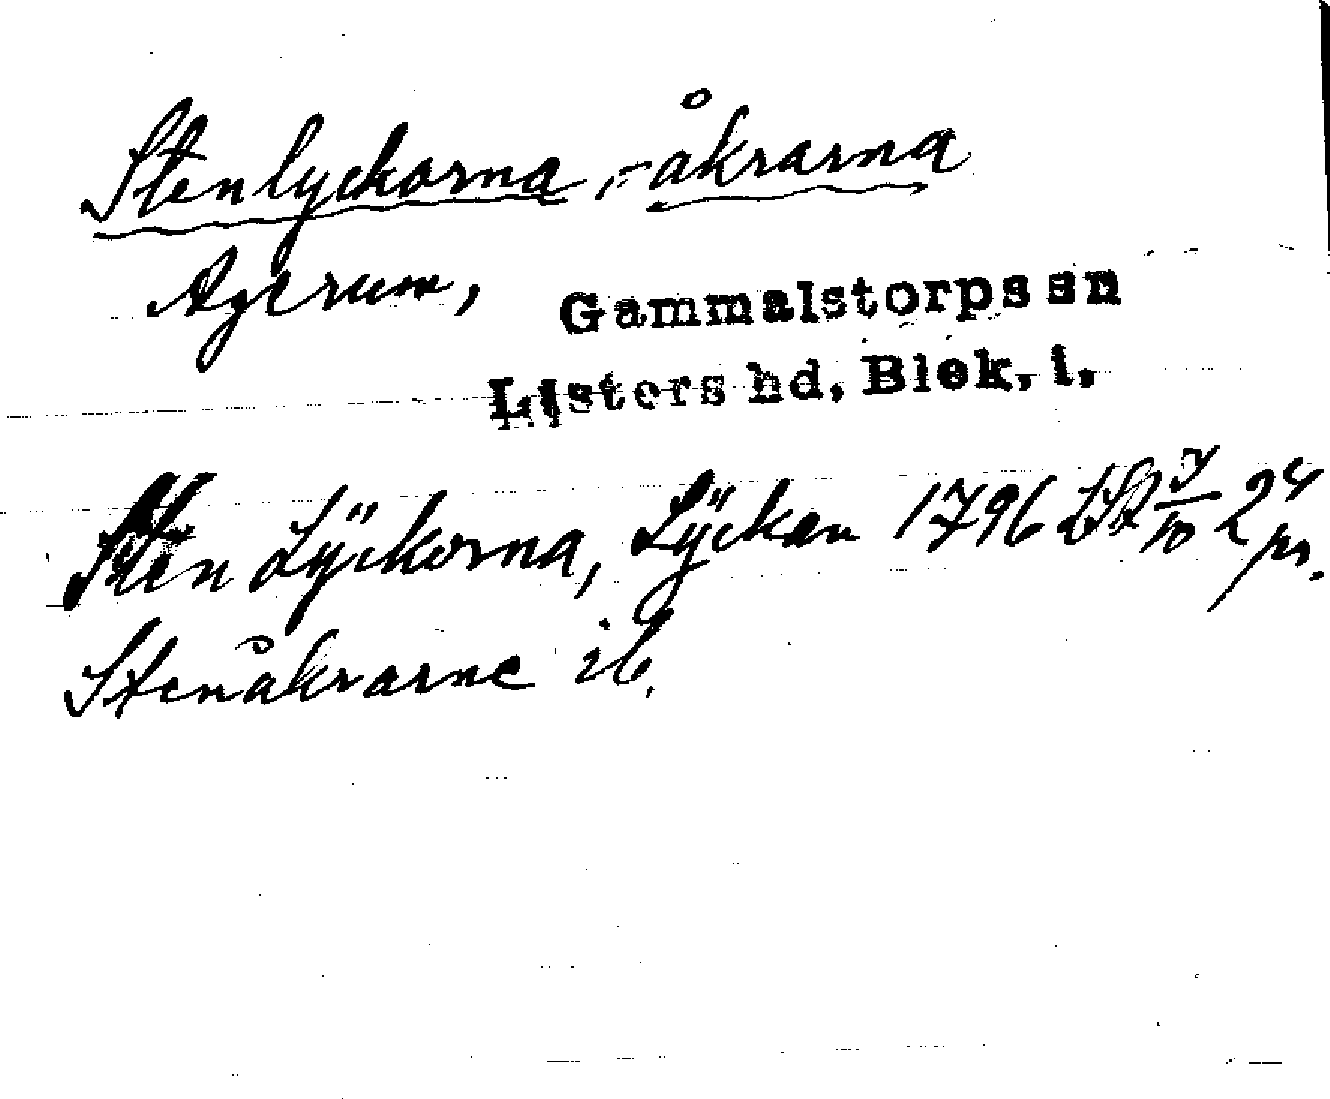 Stenlyckorna, -åkrarna
Agerum,
Gammalstorps sn
Listers hd, Blek. l.
Sten Lÿckorna, Lÿckan 1796 LSt 24
Stenåkrarne ib.